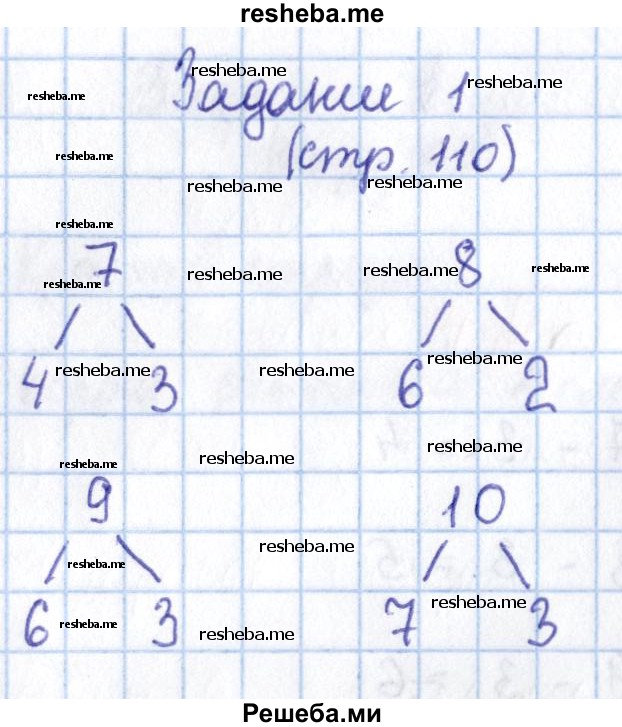 resheba.me
Задание 1
(стр. 110)
7 8
4 3 6 2
9 10
6 3 7 3
Решеба.ми